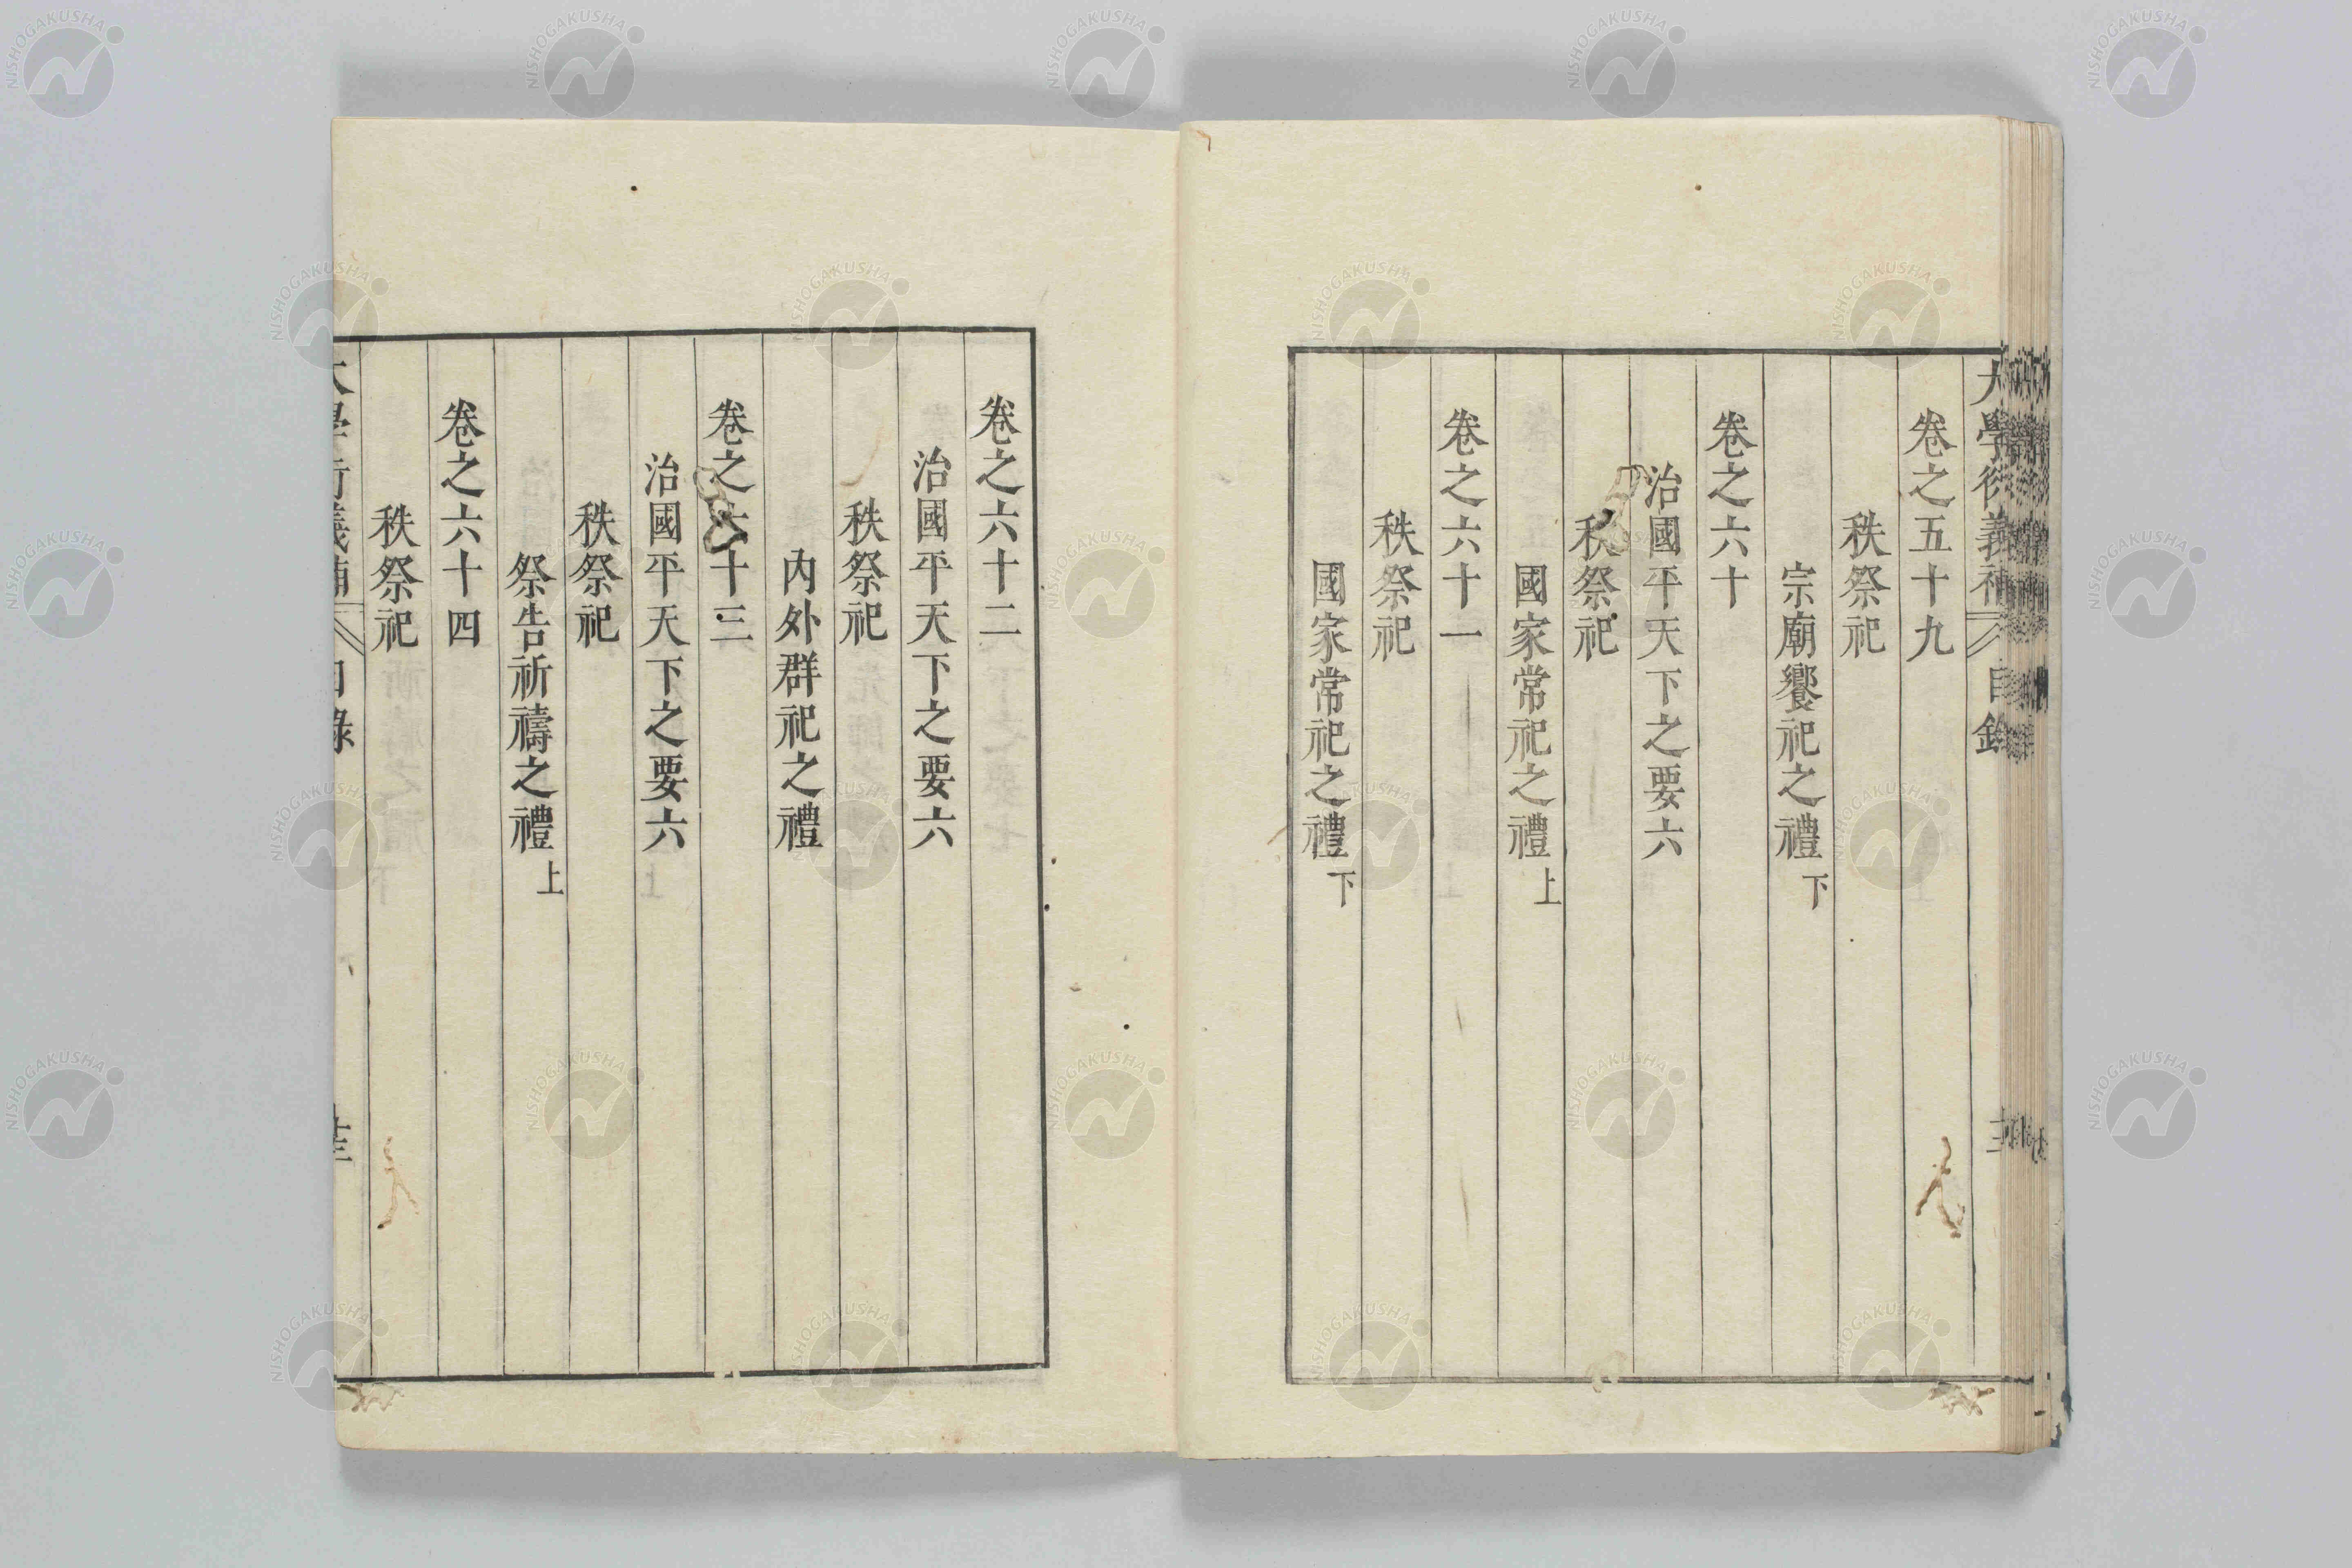 大學衍義補 目錄
卷之五十九
秩祭祀
宗廟饗祀之禮下
卷之六十
治國平天下之要六
秩祭祀
國家常祀之禮上
卷之六十一
秩祭祀
國家常祀之禮下
卷之六十二
治國平天下之要六
秩祭祀
內外群祀之禮
卷之六十三
治國平天下之要六
秩祭祀
祭告祈禱之禮上
卷之六十四
秩祭祀
大學衍義補 目錄
NISHOGAKUSHA